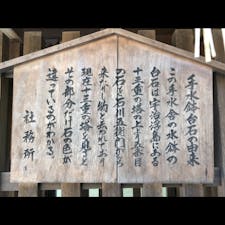 手水鉢台石の由来
この手水舎の水鉢の
台石は宇治浮島にある
十三重の塔の上から三番目
の石と石川五右衛門から
来ながし物と云われており
現在十三重の塔を見ると
その部分だけ石の色が
違っているのがわかる。
社務所